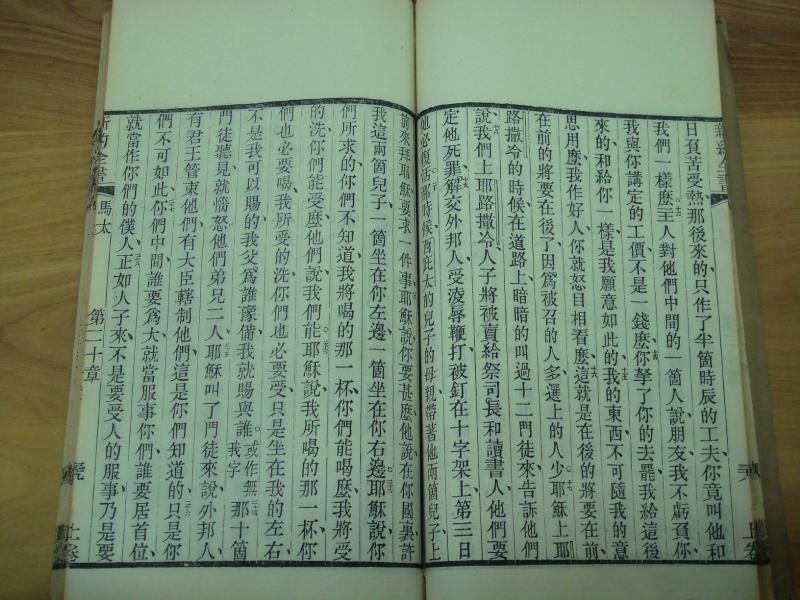 新約全書
日負苦受熱那後來的只作了半箇時辰的工夫你竟叫他和
我們一樣麽主人對他們中間的一箇人說朋友我不虧負你
我與你講定的工價不是一錢麽你拏了你的去罷我給這後
來的和給你一樣是我願意如此的我的東西不可隨我的意
思用麽我作好人你就怒目相看麽這就是在後的將要在前
在前的將要在後了因爲被召的人多選上的人少耶穌上耶
路撒冷的時候在道路上暗暗的叫過十二門徒來告訴他們
說我們上耶路撒冷人子將被賣給祭司長和讀書人他們要
定他死罪解交外邦人受淩辱鞭打被釘在十字架上第三日
他必復活那時候西庇太的兒子的母親帶著他兩箇兒子上
上卷
前來拜耶穌要求一件事耶穌說你要甚麽他說在你國裏許
我這兩箇兒子一箇坐在你左邊一箇坐在你右邊耶穌說你
們所求的你們不知道我將喝的那一杯你們能喝麽我將受
的洗你們能受麽他們說我們能耶穌說我所喝的那一杯你
們也必要喝我所受的洗你們也必要受只是坐在我的左右
不是我可以賜的我父爲誰豫備我就賜與誰或作無我字那十箇
門徒聽見就惱怒他們弟兄二人耶穌叫了門徒來說外邦人
有君王管束他們有大臣轄制他們這是你們知道的只是你
們不可如此你們中間誰要爲大就當服事你們誰要居首位
就當作你們的僕人正如人子來不是要受人的服事乃是要
新約全書
馬太
第二十章
上卷